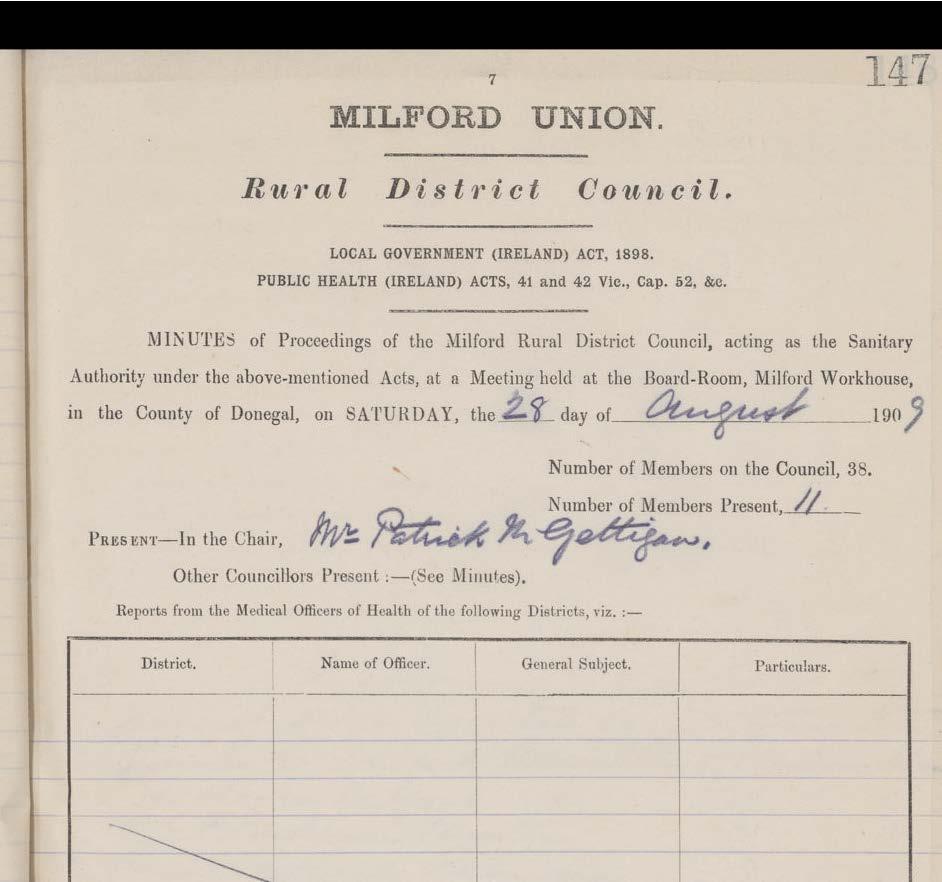 147
7
MILFORD UNION.
Rural District Council.
LOCAL GOVERNMENT (IRELAND) ACT, 1898.
PUBLIC HEALTH (IRELAND) ACTS, 41 and 42 Vic., Cap. 52, &c.
MINUTES of Proceedings of the Milford Rural District Council, acting as the Sanitary
Authority under the above-mentioned Acts, at a Meeting held at the Board-Room, Milford Workhouse,
in the County of Donegal, on SATURDAY, the 28 day of August 1909
Number of Members on the Council, 38.
Number of Members Present, 11.
PRESENT—In the Chair, Mr Patrick McGettigan.
Other Councillors Present :—(See Minutes).
Reports from the Medical Officers of Health of the following Districts, viz. :—
District. Name of Officer. General Subject. Particulars.